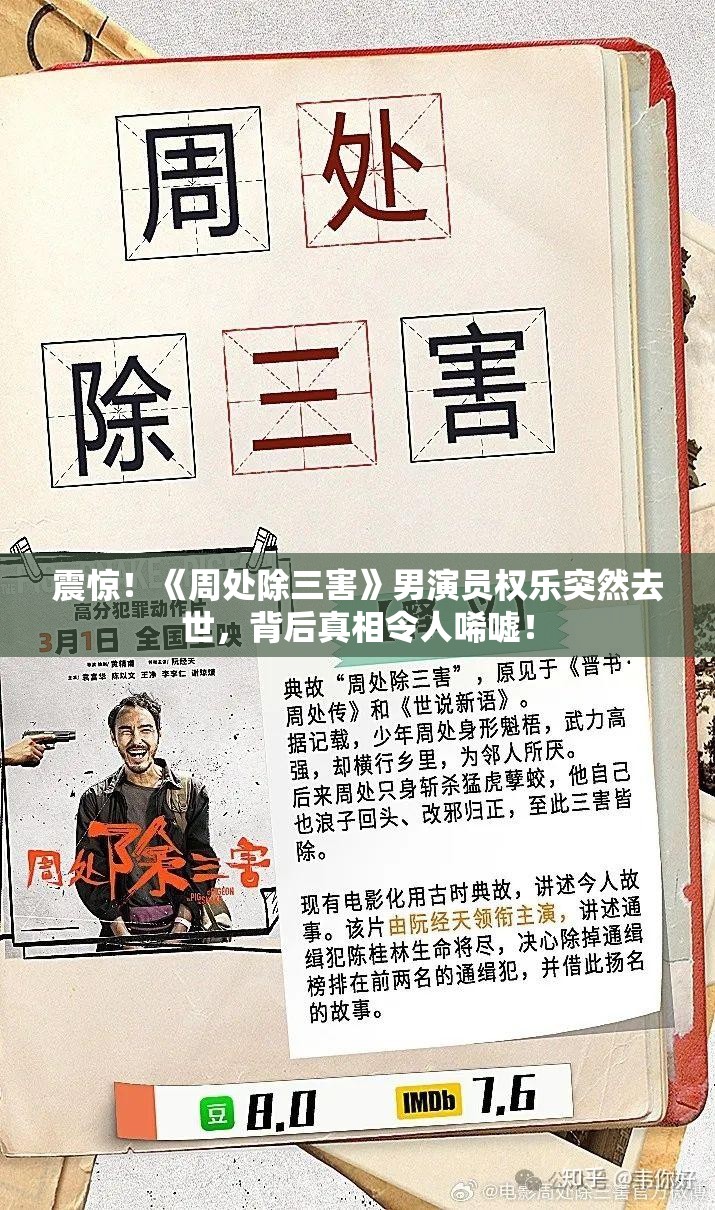 周处
除三害
震惊！《周处除三害》男演员权乐突然去
世，背后真相令人唏嘘！
高分犯罪动作片
3月1日 全国上映
主演：袁富华 陈以文 王净 李李仁 谢琼煖
典故“周处除三害”，原见于《晋书·
周处传》和《世说新语》。
据记载，少年周处身形魁梧，武力高
强，却横行乡里，为邻人所厌。
后来周处只身斩杀猛虎孽蛟，他自己
也浪子回头、改邪归正，至此三害皆
除。
现有电影化用古时典故，讲述今人故
事。该片由阮经天领衔主演，讲述通
缉犯陈桂林生命将尽，决心除掉通缉
榜排在前两名的通缉犯，并借此扬名
的故事。
周处除三害
豆 8.0 IMDb 7.6
知乎 @韦你好
@电影周处除三害官方微博